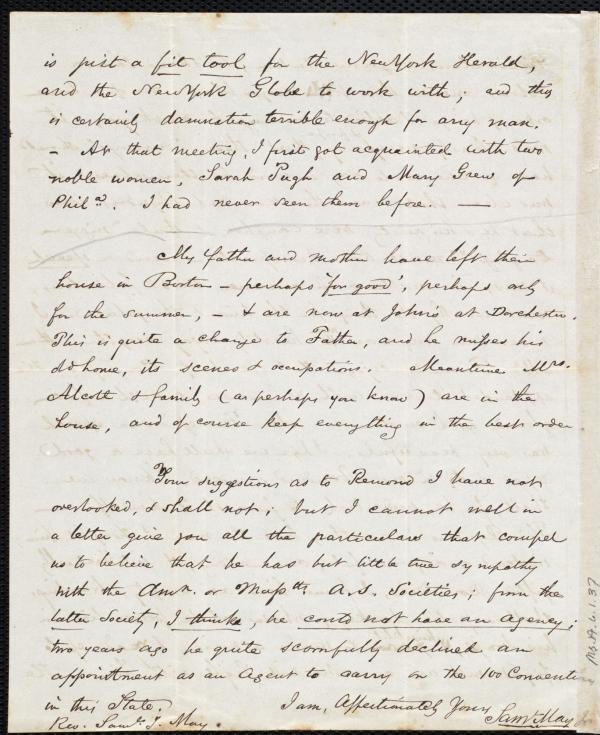 is just a fit tool for the New York Herald,
and the New York Globe to work with; and this
is certainly damnation terrible enough for any man.
– At that meeting, I first got acquainted with two
noble women, Sarah Pugh and Mary Grew of
Phila. I had never seen them before. —
My father and mother have left their
house in Boston – perhaps 'for good', perhaps only
for the summer, – & are now at John's at Dorchester.
This is quite a change to Father, and he misses his
old home, its scenes & occupations. Meantime Mrs.
Alcott & family (as perhaps you know) are in the
house, and of course keep everything in the best order
Your suggestions as to Remond I have not
overlooked, & shall not; but I cannot well in
a letter give you all the particulars that compel
us to believe that he has but little true sympathy
with the Amn. or Massts. A.S. Societies; from the
latter Society, I think, he could not have an Agency;
two years ago he quite scornfully declined an
appointment as an Agent to carry on the 100 Conventions
in this State. I am, Affectionately Yours
Saml. May Jr
Rev. Saml. J. May.
Ms.A.6.1.37